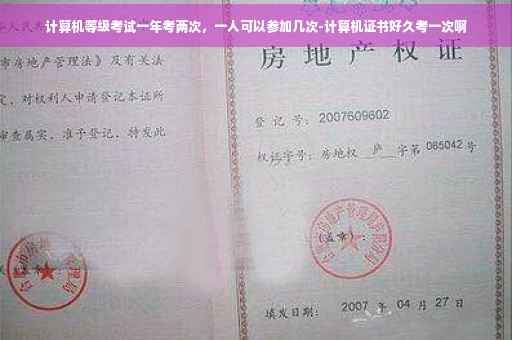 计算机等级考试一年考两次，一人可以参加几次-计算机证书好久考一次啊
市房地产管理法》及有关法
定，对权利人申请登记本证所
审查属实，准予登记，特发此
房地产权证
登记号：2007609602
权证字号：房地权 庐 字第 085042 号
（盖章）：
填发日期：2007 年 04 月 27 日